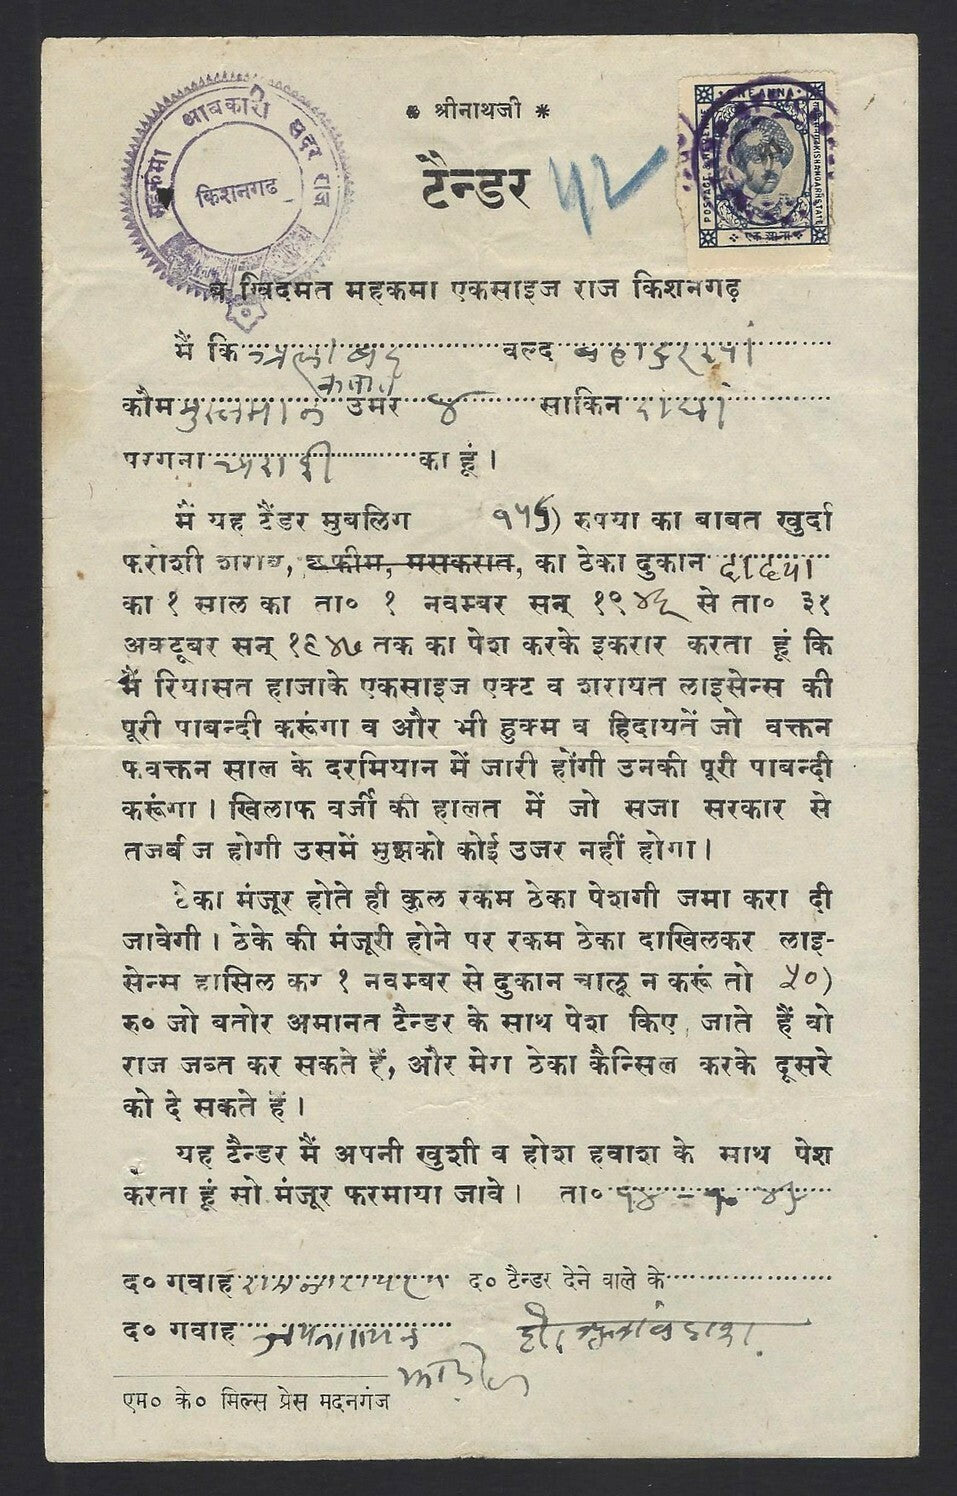 महकमा आबकारी सदर राज
किशनगढ
* श्रीनाथजी *
टैन्डर ५२
ONE ANNA
POSTAGE & REVENUE
KISHANGARH STATE
एक आना
ब खिदमत महकमा एकसाइज राज किशनगढ़
मैं कि वल्द
कौम मुसलमान उमर साकिन
परगना अरांई का हूं ।
मैं यह टैंडर मुबलिग रुपया का बाबत खुर्दा
फरोशी शराब, अफीम, मसकरात, का ठेका दुकान
का १ साल का ता० १ नवम्बर सन् १९४६ से ता० ३१
अक्टूबर सन् १९४७ तक का पेश करके इकरार करता हूं कि
मैं रियासत हाजाके एकसाइज एक्ट व शरायत लाइसेन्स की
पूरी पाबन्दी करूंगा व और भी हुक्म व हिदायतें जो वक्तन
फवक्तन साल के दरमियान में जारी होंगी उनकी पूरी पाबन्दी
करूंगा । खिलाफ वर्जी की हालत में जो सजा सरकार से
तजबीज होगी उसमें मुझको कोई उजर नहीं होगा ।
ठेका मंजूर होते ही कुल रकम ठेका पेशगी जमा करा दी
जावेगी । ठेके की मंजूरी होने पर रकम ठेका दाखिलकर लाइ-
सेन्स हासिल कर १ नवम्बर से दुकान चालू न करूं तो ५०)
रु० जो बतोर अमानत टैन्डर के साथ पेश किए जाते हैं वो
राज जब्त कर सकते हैं, और मेरा ठेका कैन्सिल करके दूसरे
को दे सकते हैं ।
यह टैन्डर मैं अपनी खुशी व होश हवाश के साथ पेश
करता हूं सो मंजूर फरमाया जावे । ता०
द० गवाह रामनारायण द० टैन्डर देने वाले के
द० गवाह
एम० के० मिल्स प्रेस मदनगंज